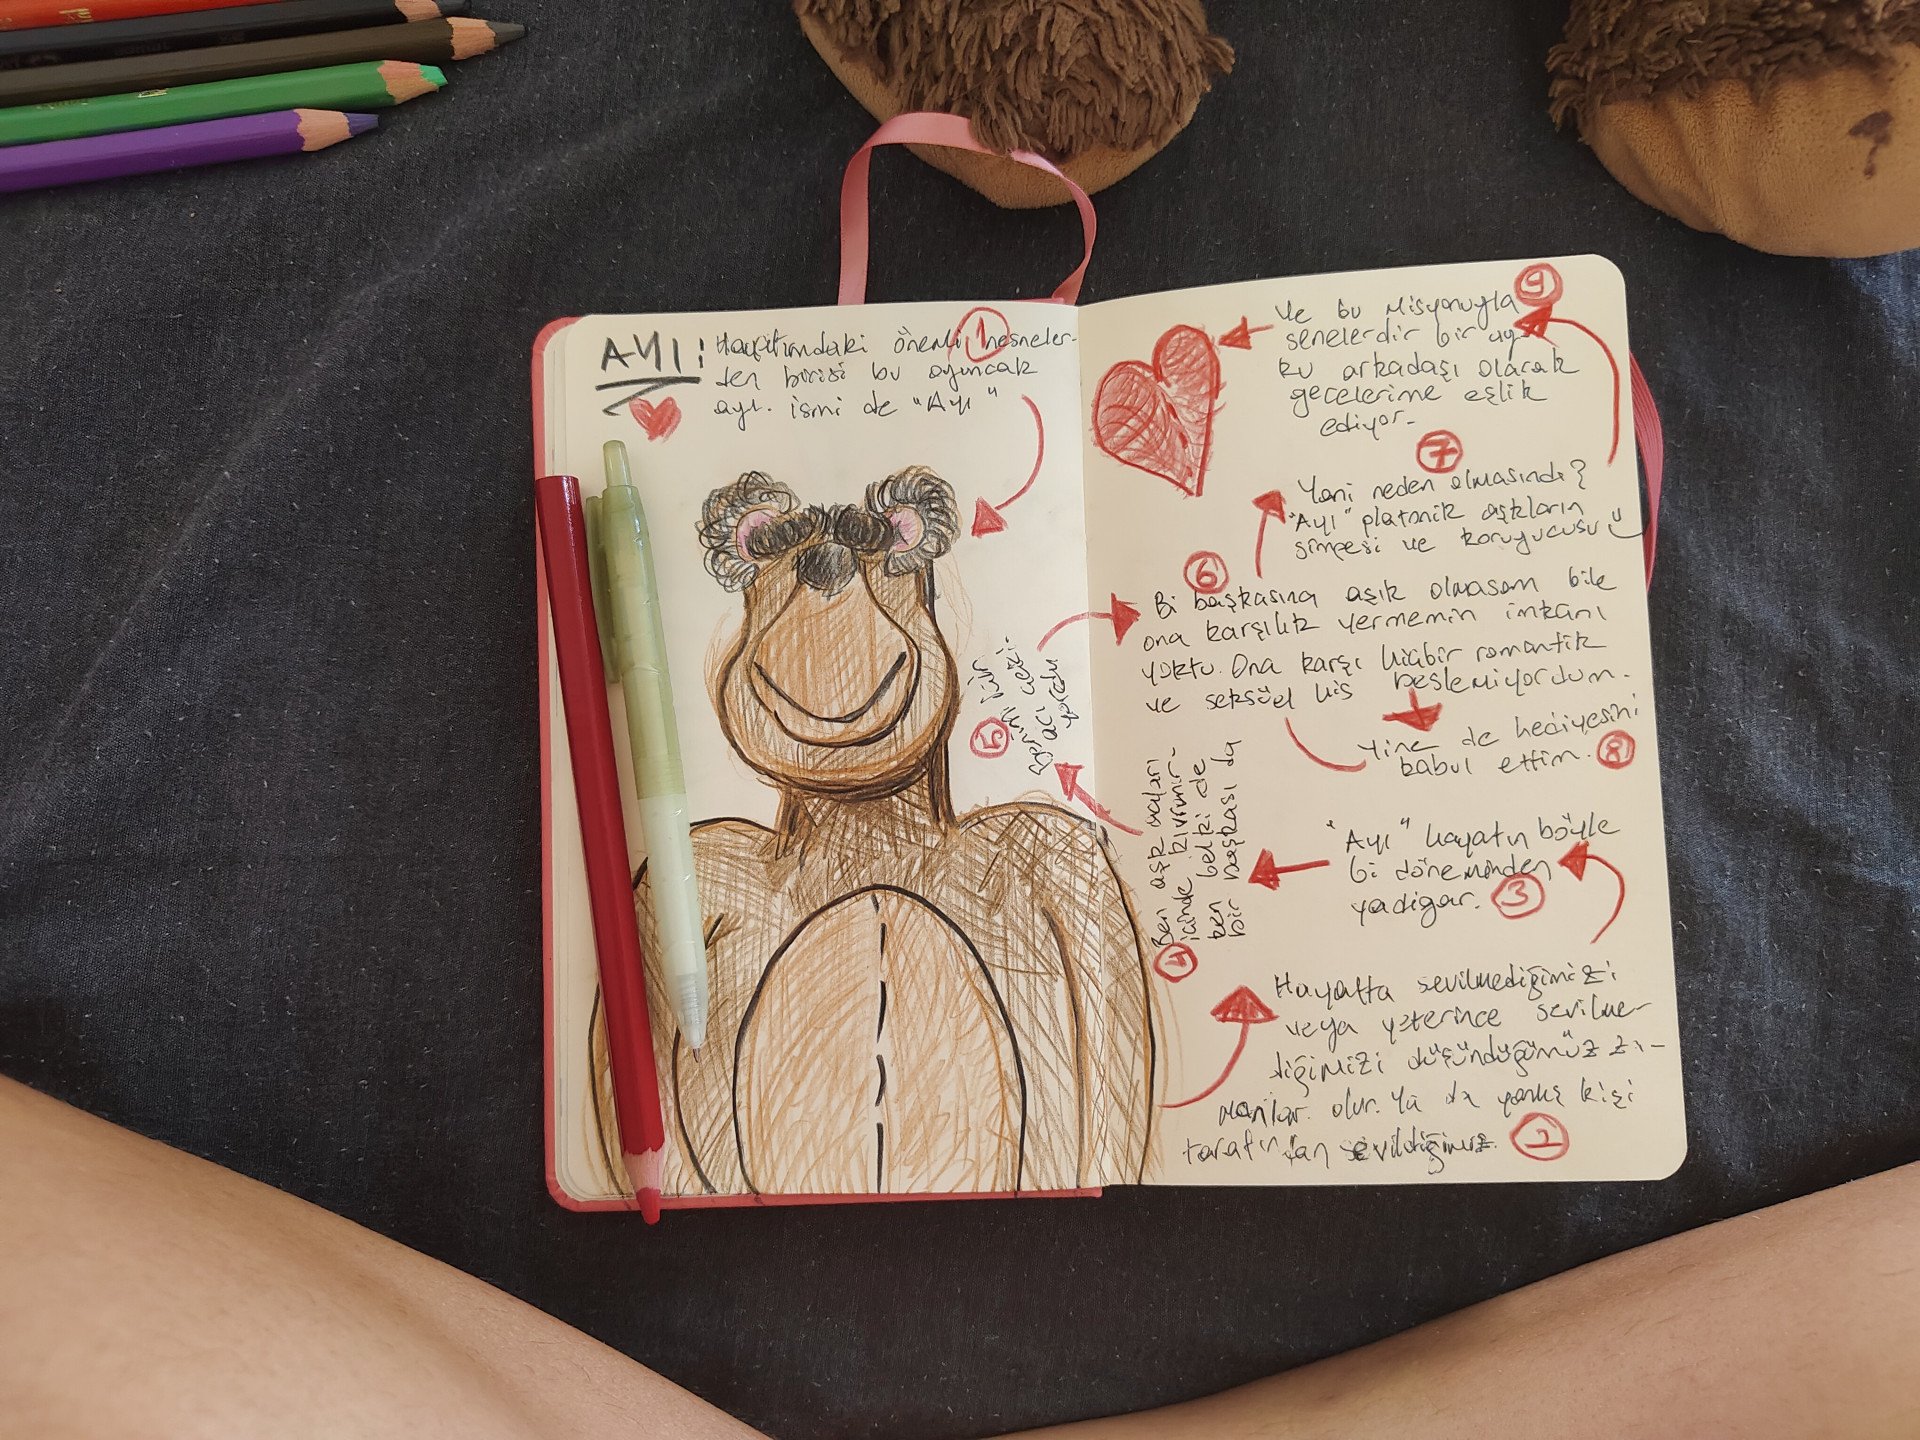 AYI:
Hayatımdaki önemli nesneler-
den birisi bu oyuncak
ayı. ismi de "Ayı"
1
Hayatta sevilmediğimizi
veya yeterince sevilme-
diğimizi düşündüğümüz za-
manlar olur. Ya da yanlış kişi
tarafından sevildiğimiz.
2
"Ayı" hayatın böyle
bi döneminden
yadigar.
3
Ben aşk acıları
içinde kıvranır-
ken belki de
bir başkası da
4
acı çeki-
yordu
5
Bi başkasına aşık olmasam bile
ona karşılık vermemin imkanı
yoktu. Ona karşı hiçbir romantik
ve seksüel his beslemiyordum.
6
Yani neden olmasındı?
"Ayı" platonik aşkların
simgesi ve koruyucusu
7
yine de hediyesini
kabul ettim.
8
Ve bu misyonuyla
senelerdir bir uy-
ku arkadaşı olarak
gecelerime eşlik
ediyor.
9